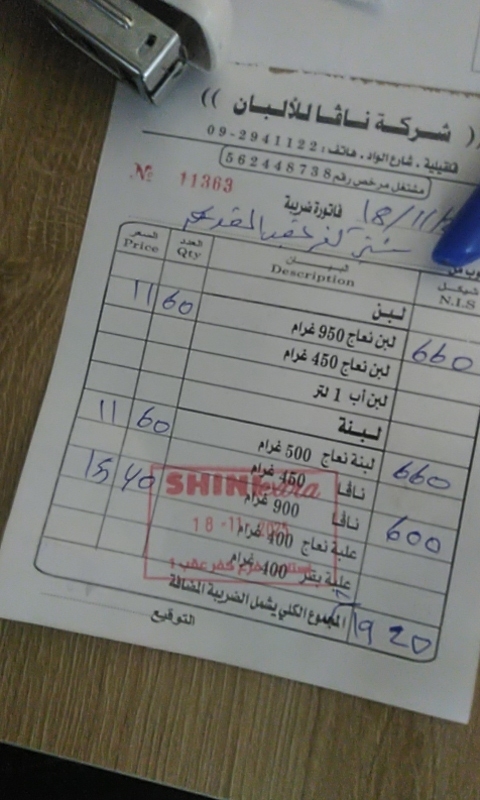 (( شركة نافا للألبان ))
قلقيلية . شارع الواد . هاتف : 09-2941122
مشتغل مرخص رقم 562448738
№ 11363
فاتورة ضريبة 18/11/
السعر Price العدد Qty البيـــان Description شيكل N.I.S
لبـن
11 60 لبن نعاج 950 غرام 660
لبن نعاج 450 غرام
لبن أب 1 لتر
لبـنة
11 60 لبنة نعاج 500 غرام 660
15 40 نافا 450 غرام 600
نافا 900 غرام
علبة نعاج 400 غرام
علبة بقر 400 غرام
SHINI
18-11-2025
المجموع الكلي يشمل الضريبة المضافة 1920
التوقيع